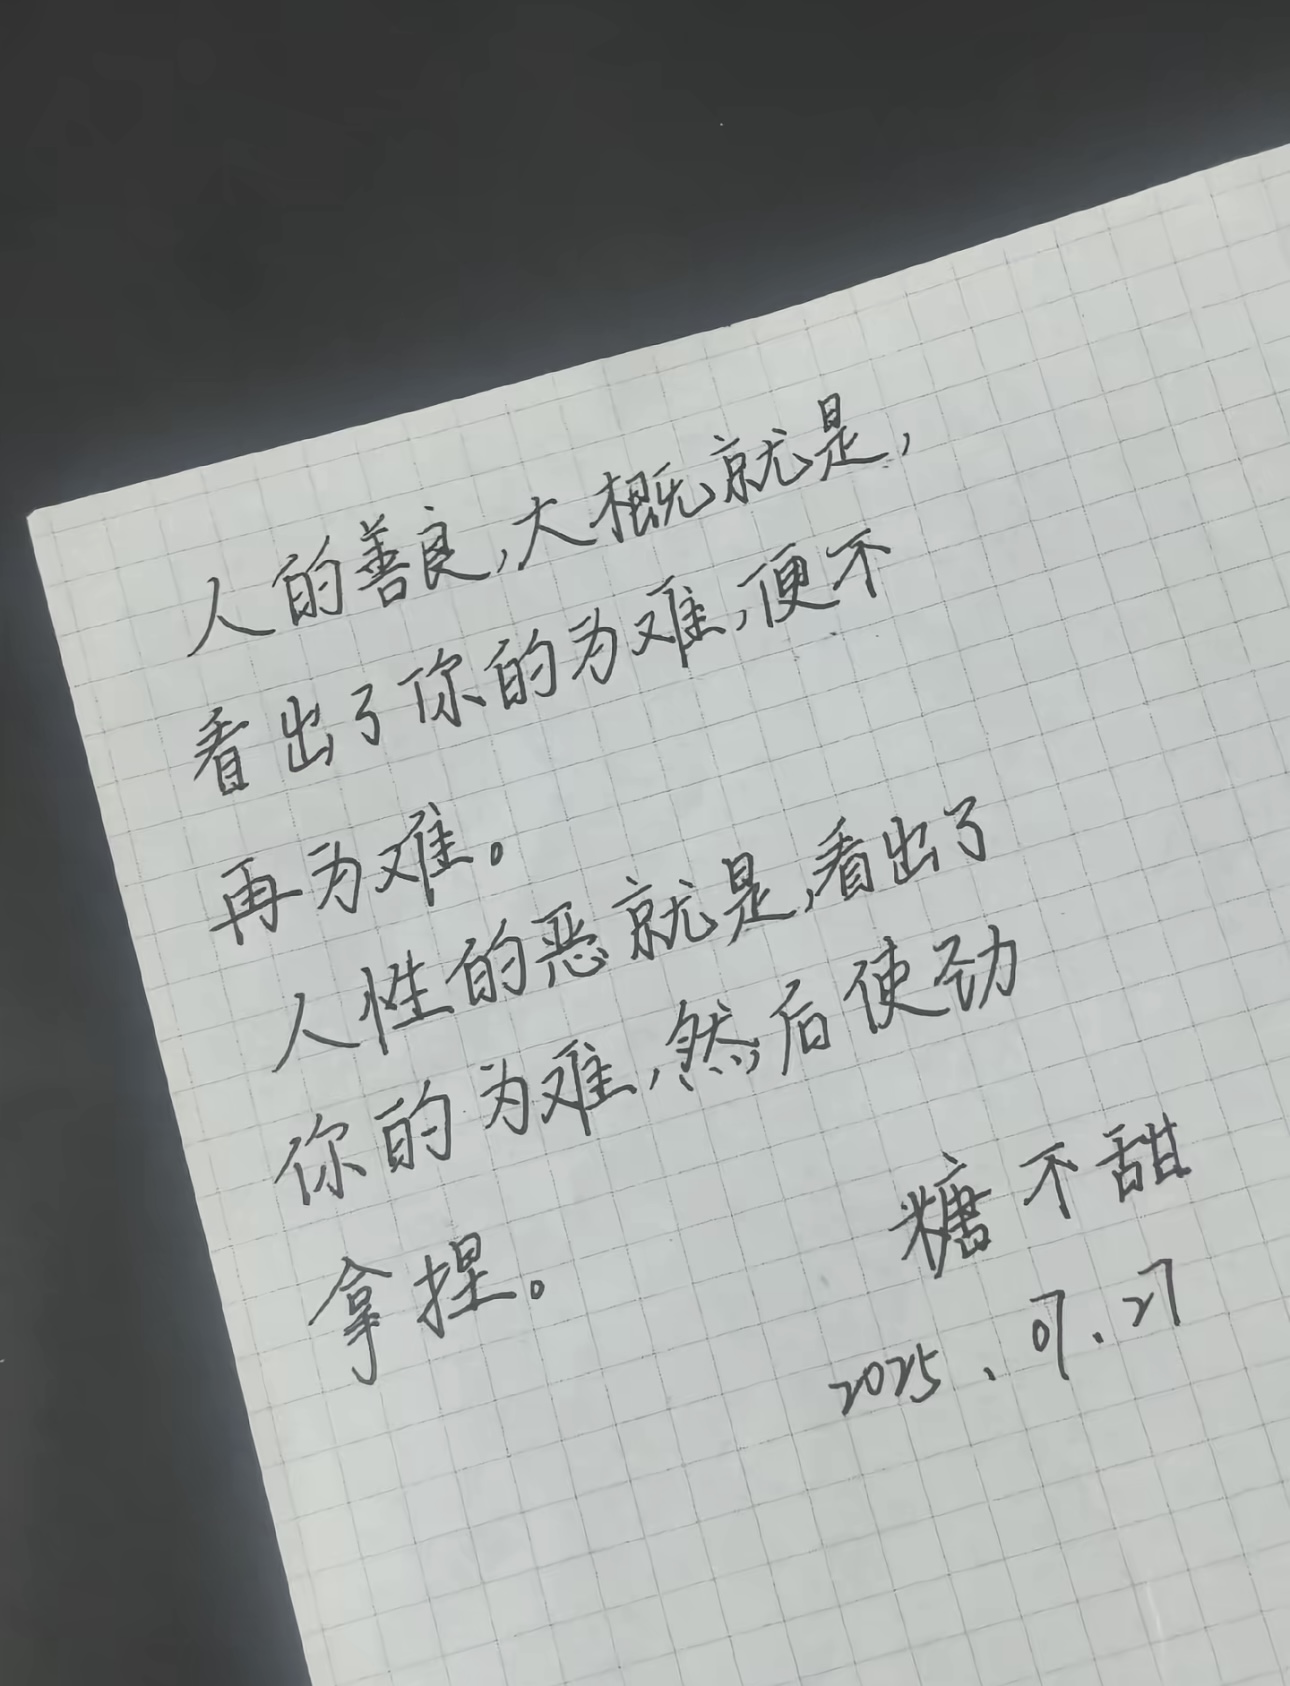 人的善良,大概就是,
看出了你的为难,便不
再为难。
人性的恶就是,看出了
你的为难,然后使劲
拿捏。
糖不甜
2025.07.27